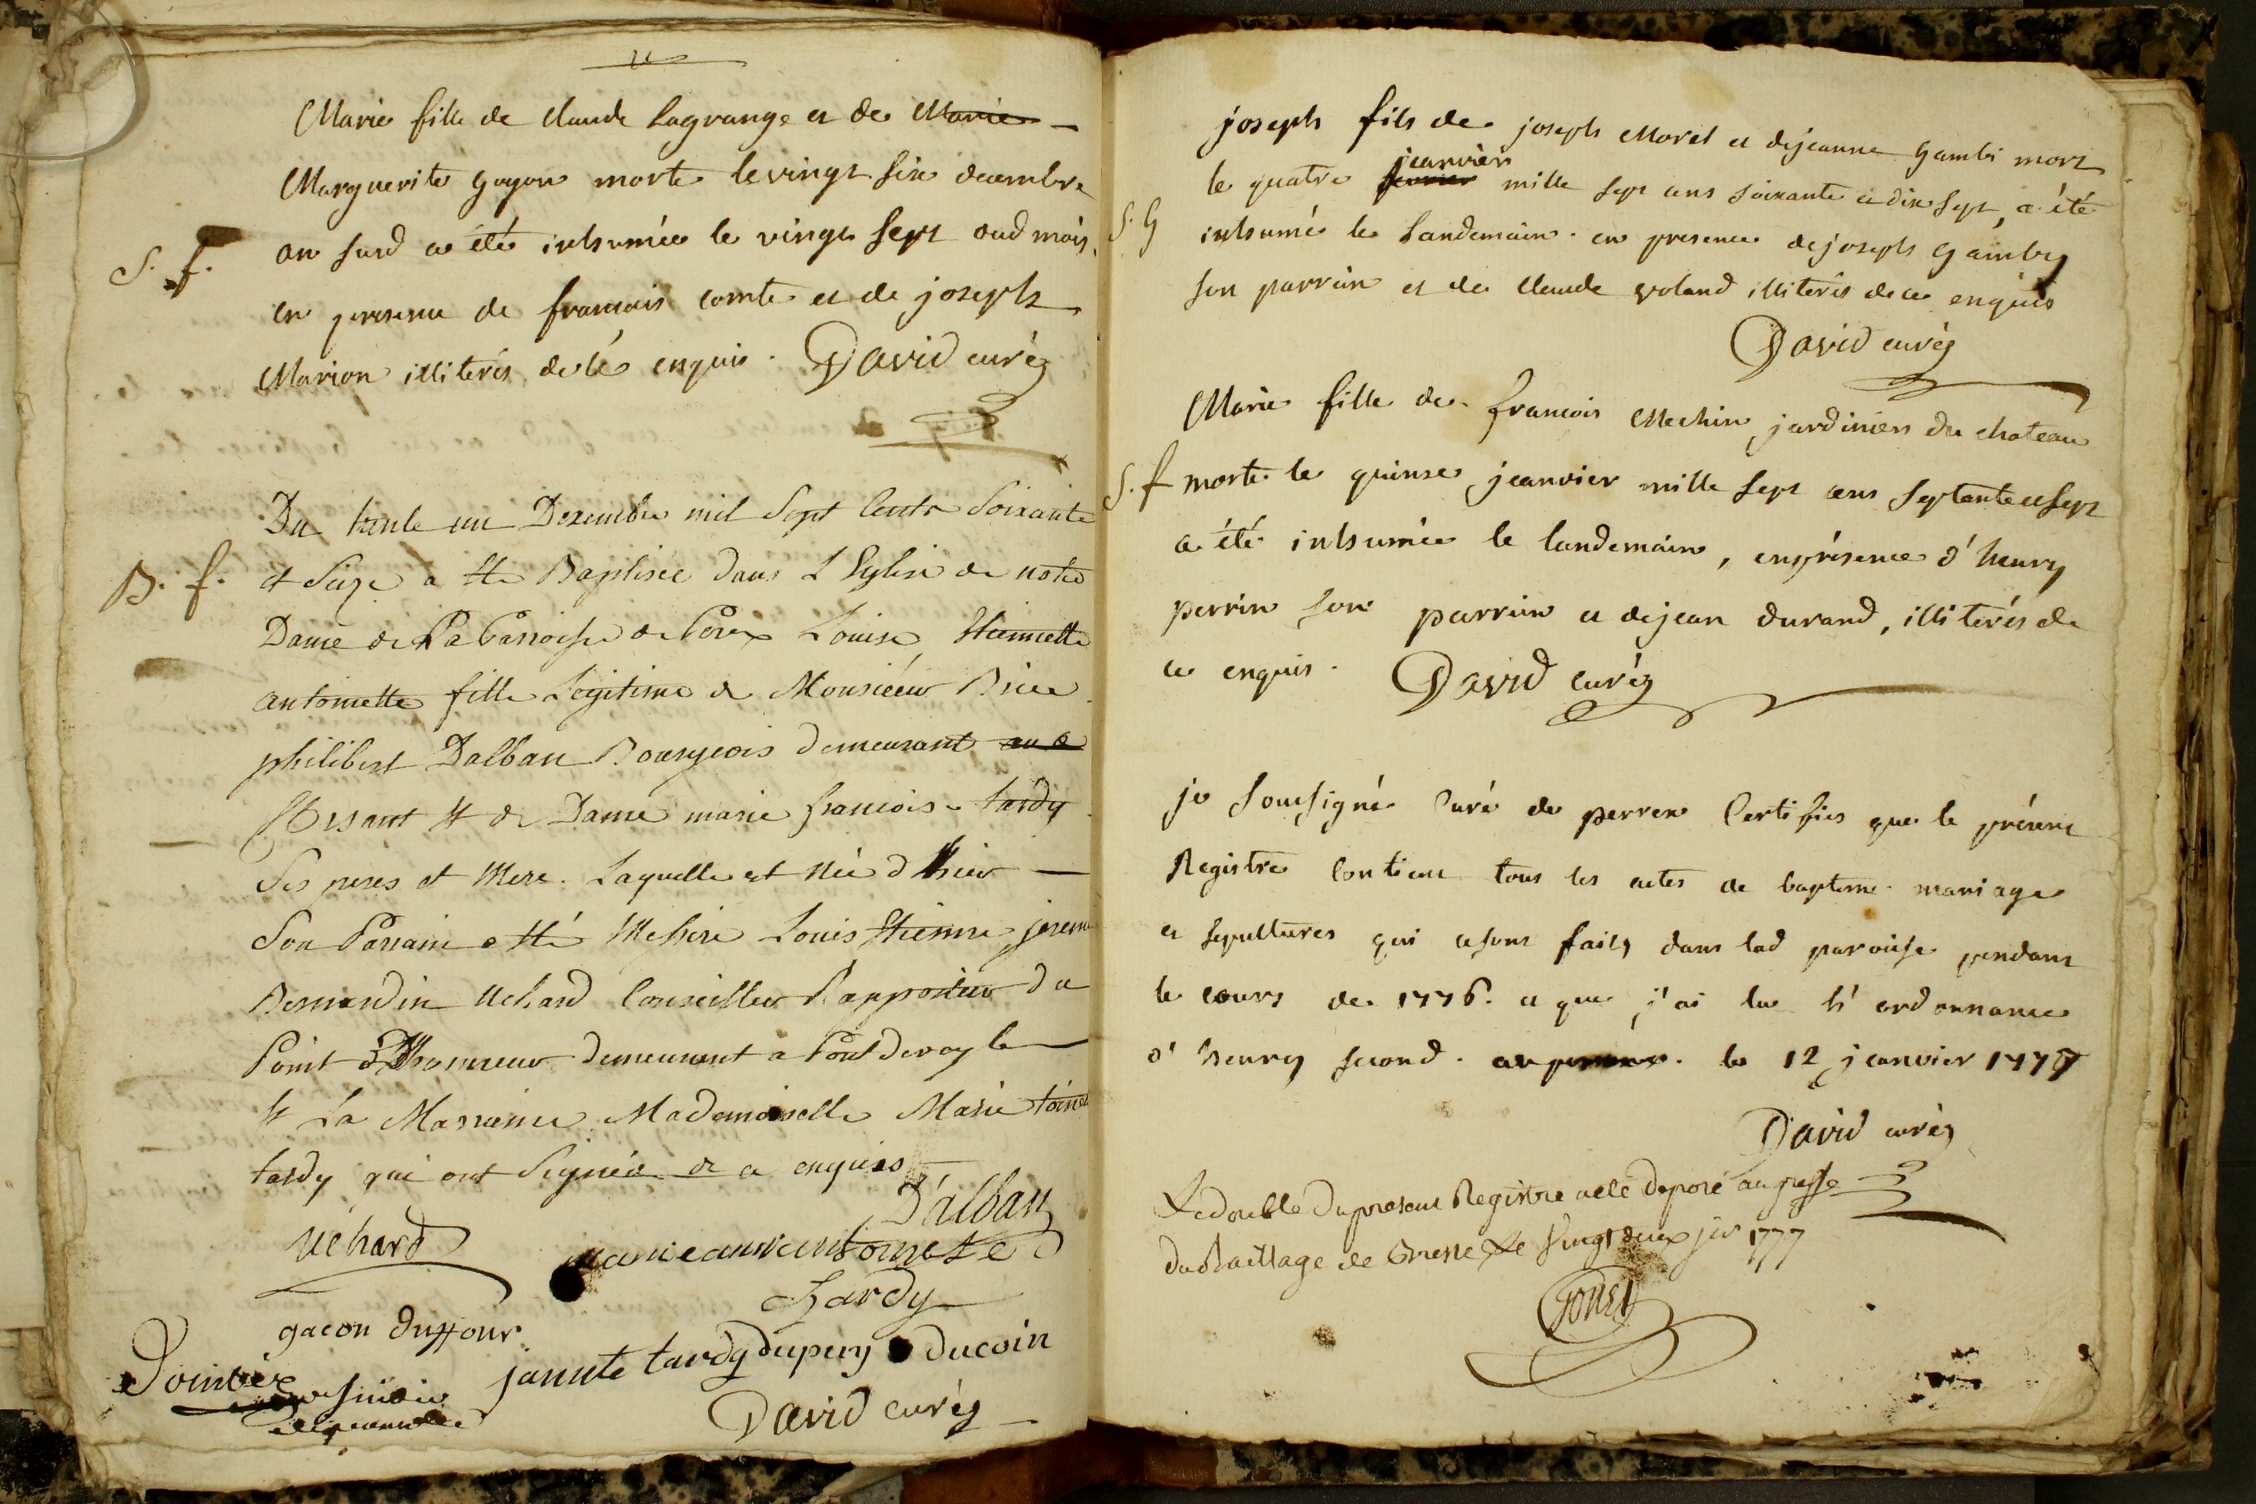 Marie fille de Claude Lagrange et de Marie
Marguerite goyon morte le vingt six decembre
S. f. an susd a été inhumée le vingt sept dud mois
en presence de francois comte et de joseph
Marion illiterés de cé enquis. David curéz
Du trente un Dexembre mil Sept Cents Soixante
B. f. et Seize a Ete Baptisée dans L'Eglise de notre
Dame de La Parroisse de Louise Etiennette
antoinette fille Legitime de Monsiéeur Brice
philibert Dalban Bourgeois demeurant au
Et de Dame marie francoise tardy
Ses peres et Mere. Laquelle est Née d'hier
Son Parrain a Eté Messire Louis Etienne jereme
Bernardin Uchard Conseiller Rapporteur du
Point d'Honneur demeurant a Pont de veyle
Et La Marrainne Mademoiselle Marie toinet
tardy qui ont Signée de ce enquies
D'alban
Uchard
antoinette
tardy
gacon duffour
janete tardy dupuy ducoin
David curéz
joseph fils de joseph Morel et de jeanne gambi mort
le quatre fevrier jeanvier mille sept cens soixante et dix sept, a été
S. G inhumé le Landemain. en presence de joseph gamby
son parrain et de Claude voland illiterés de ce enquis
David curéz
Marie fille de francois Mechin jardinier du chateau
S. f morte le quinse jeanvier mille sept cens septante et sept
a été inhumée le landemain, en présence d'henry
perrin son parrain et de jean durand, illiterés de
ce enquis. David curéz
je soussigné Curé de perrex Certifies que le présent
Registre Contient tous les actes de bapteme mariage
et sepultures qui se sont faits dans lad paroisse pendant
le cours de 1776. et que j'ai lu l'ordonnance
d'henry second. a perrex. le 12 jeanvier 1777
David curéz
Le double du present Registre a eté deposé au greffe
du Baillage de Bresse Le Vingt deux jer 1777